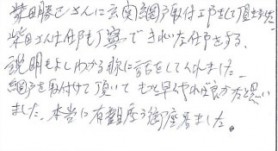 柴田勝己さんに玄関網戸取付工事をして頂きました
柴田さん仕事も丁寧できれいな仕事をする。
説明もよくわかる様に話をしてくれました
網戸を取付けて頂いてもっと早くやれば良かったと思い
ました。本当に有難度う御座居ました。